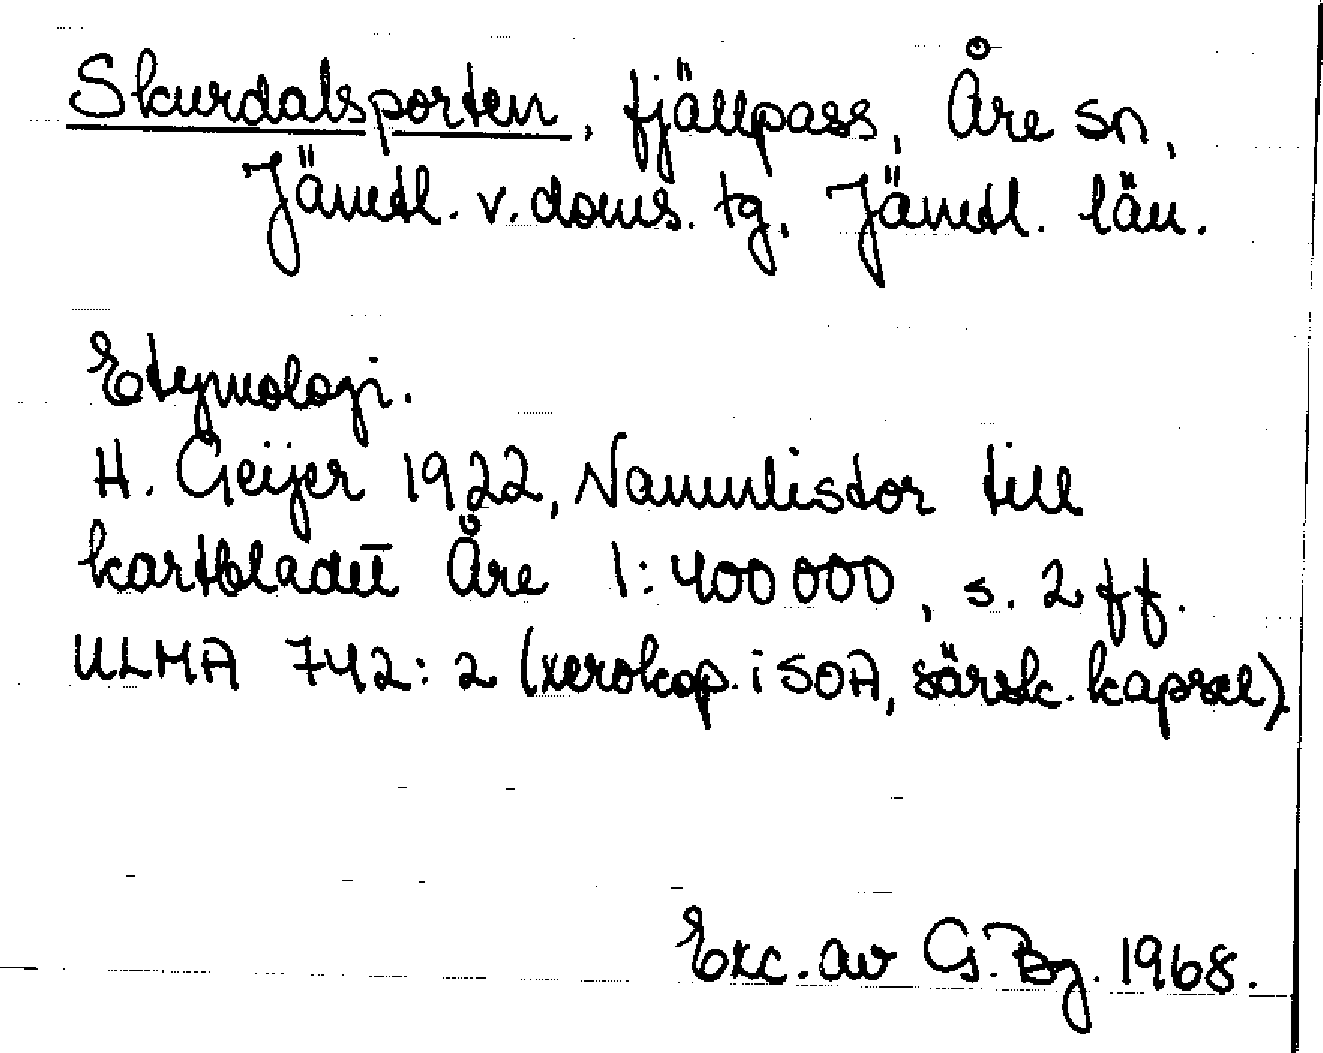 Skurdalsporten, fjällpass, Åre sn,
Jämtl. v. doms. tg, Jämtl. län.
Etymologi.
H. Geijer 1922, Namnlistor till
kartbladet Åre 1:400 000, s. 2 ff.
ULMA 742:2 (xerokop. i SOA, särsk. kapsel)
Exc. av G. Bg. 1968.